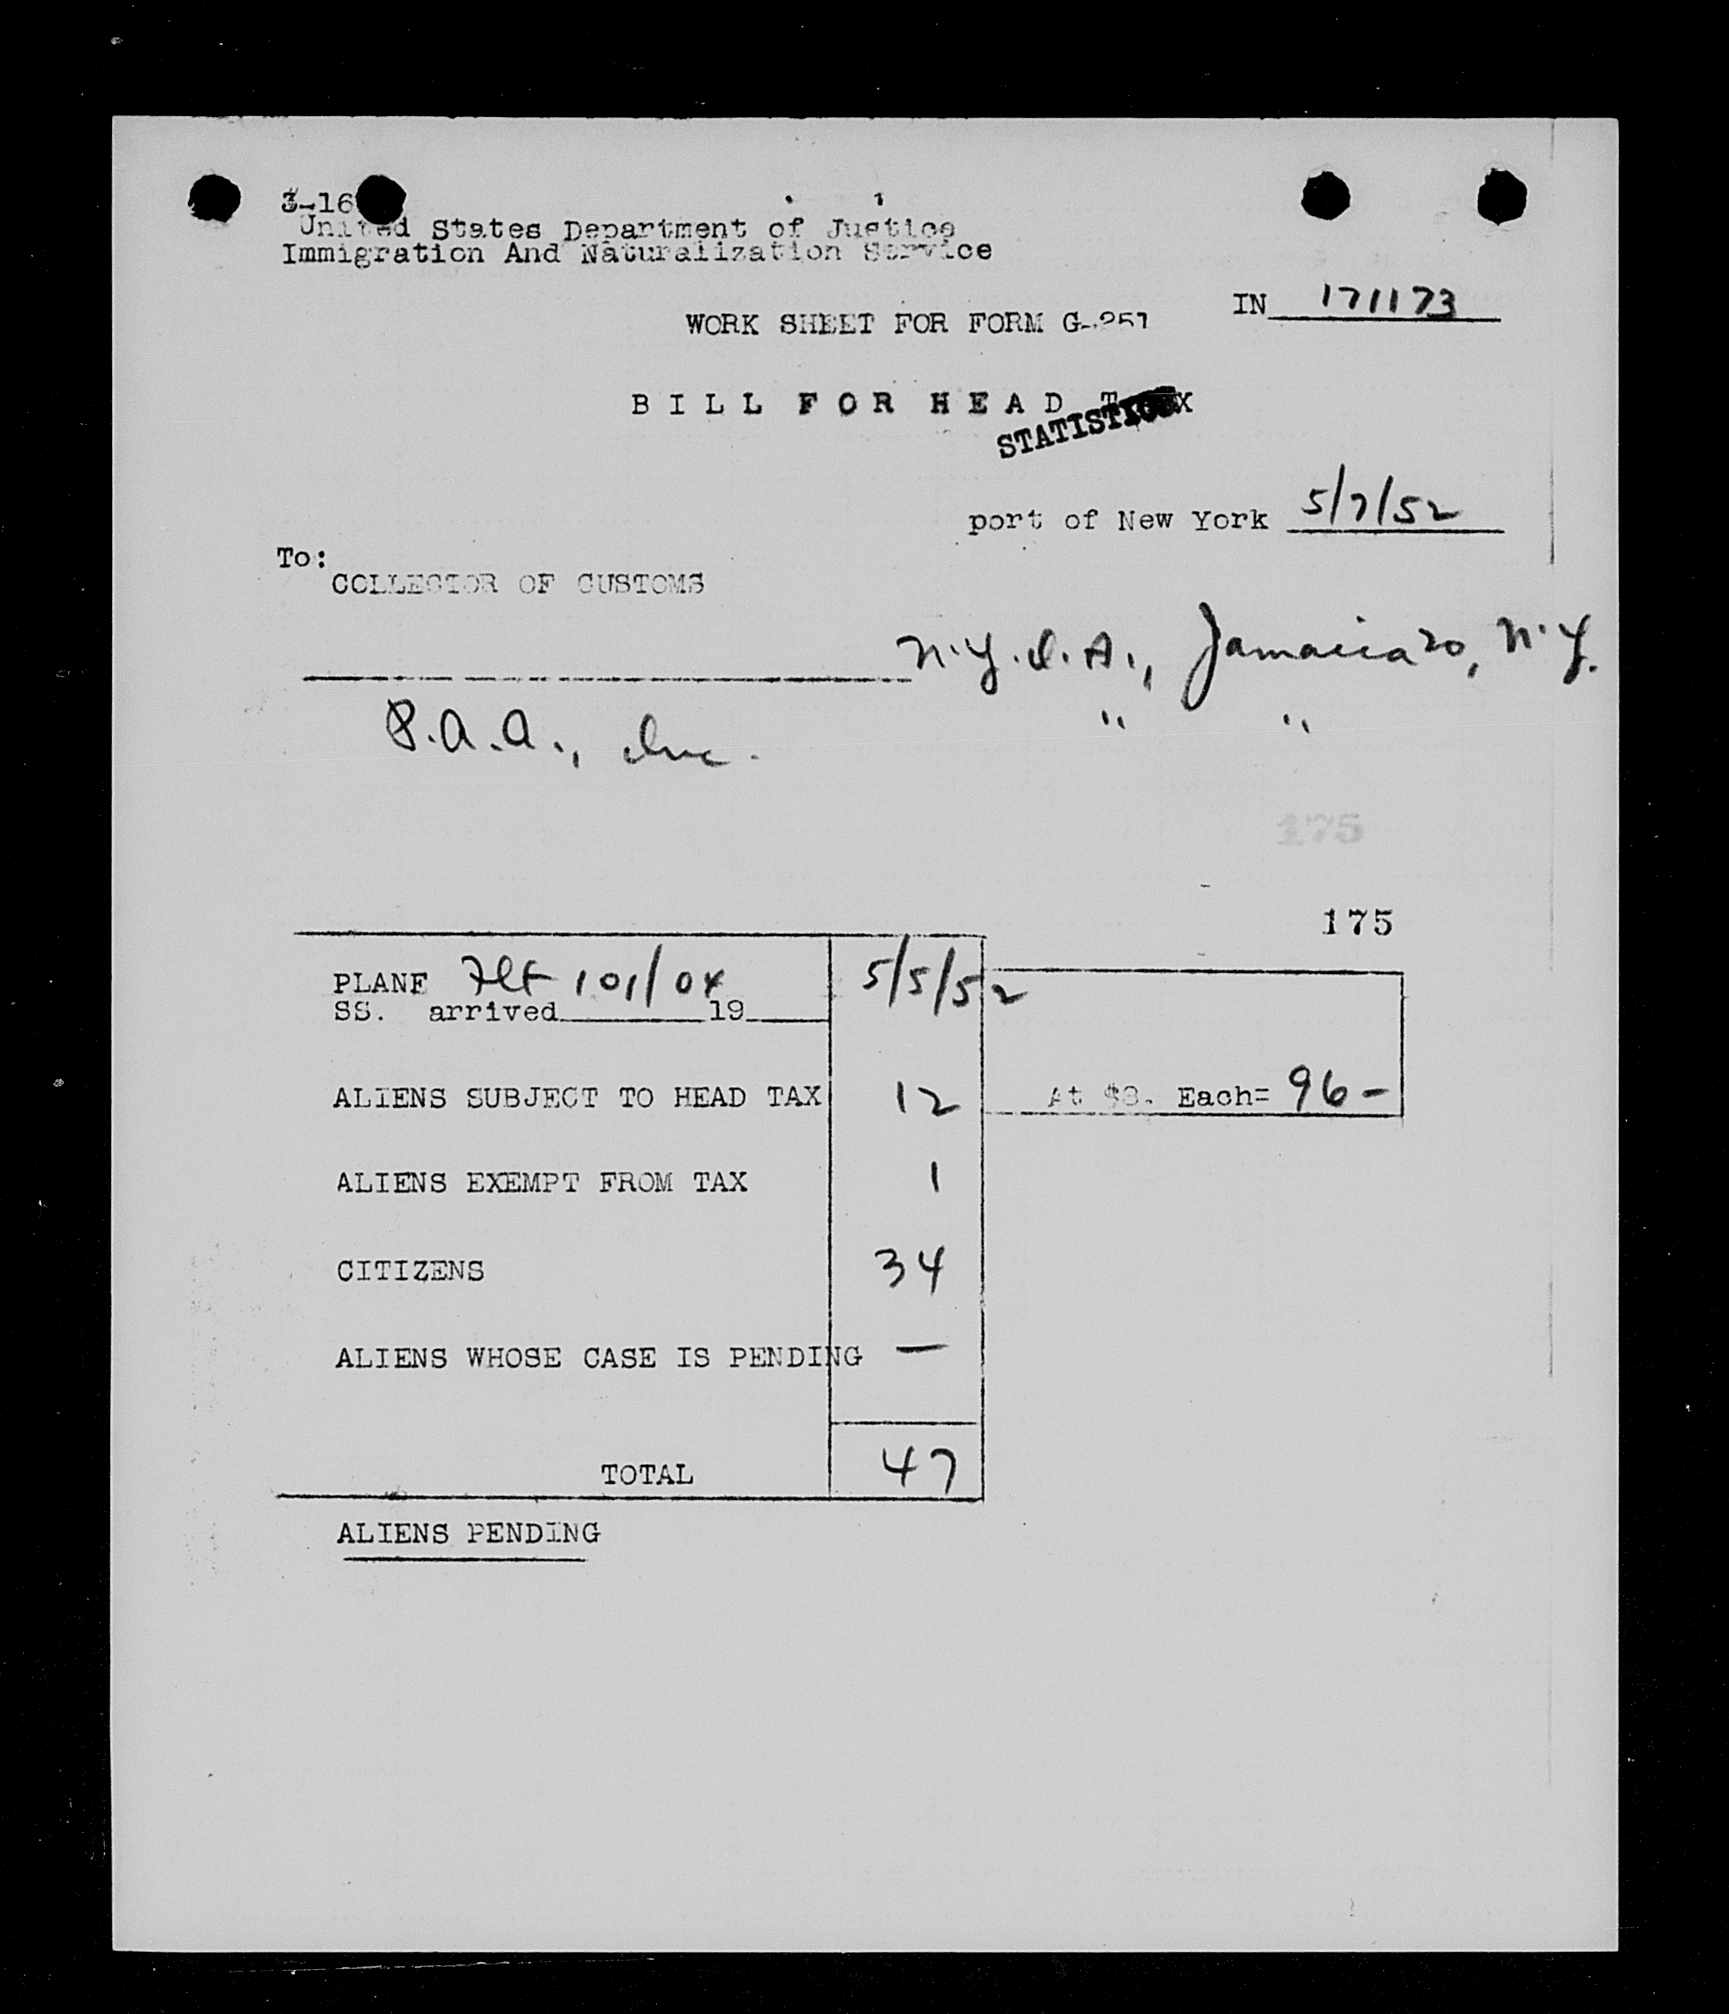 3-16
United States Department of Justice
Immigration And Naturalization Service
IN 171173
WORK SHEET FOR FORM G-251
BILL FOR HEAD TAX
STATISTICS
port of New York 5/7/52
To:
COLLECTOR OF CUSTOMS
N.Y.I.A., Jamaica 20, N.Y.
P.A.A., Inc. " "
175
175
PLANE Flt 101/04 5/5/52
SS. arrived 19
ALIENS SUBJECT TO HEAD TAX 12 At $8. Each= 96-
ALIENS EXEMPT FROM TAX 1
CITIZENS 34
ALIENS WHOSE CASE IS PENDING —
TOTAL 47
ALIENS PENDING